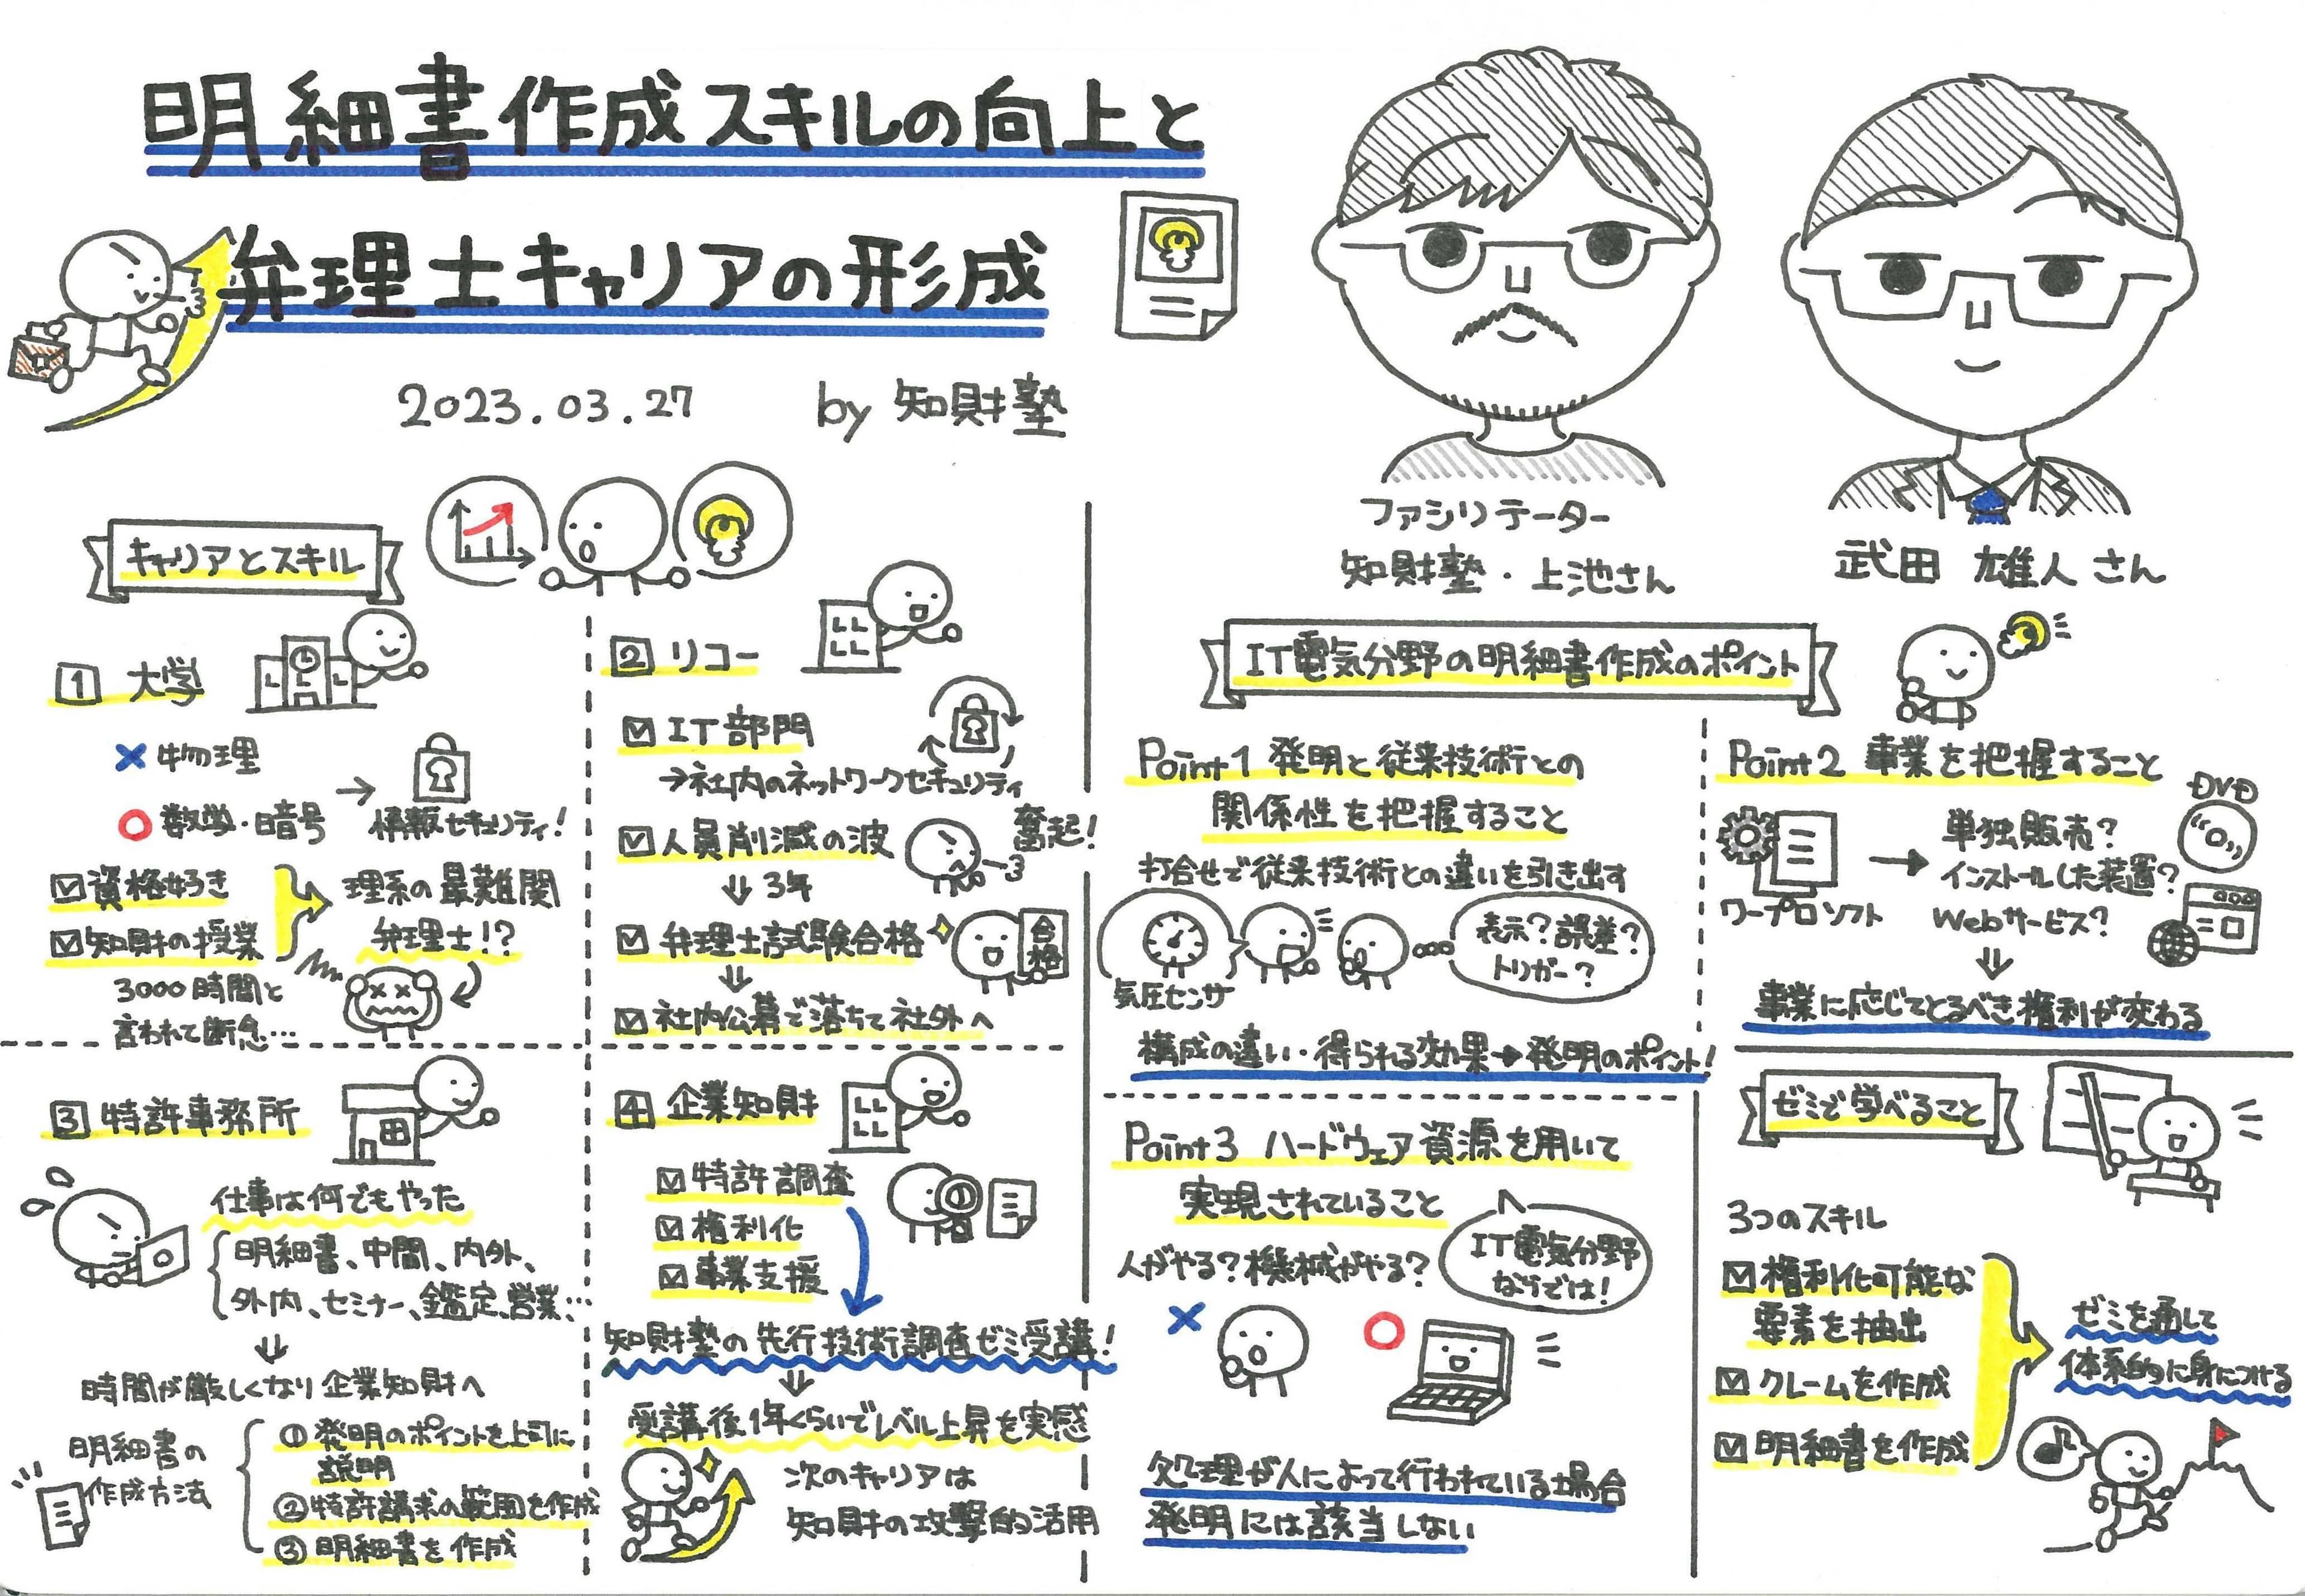 明細書作成スキルの向上と
弁理士キャリアの形成
2023.03.27 by 知財塾
ファシリテーター
知財塾・上池さん
武田 雄人さん
キャリアとスキル
1 大学
×物理
○数学・暗号
→
情報セキュリティ!
☑資格好き
☑知財の授業
理系の最難関
弁理士!?
3000時間と
言われて断念…
2 リコー
☑IT部門
→社内のネットワークセキュリティ
☑人員削減の波
奮起!
⇓3年
☑弁理士試験合格
合格
⇓
☑社内公募で落ちて社外へ
3 特許事務所
仕事は何でもやった
明細書、中間、内外、
外内、セミナー、鑑定、営業…
⇓
時間が厳しくなり企業知財へ
明細書の
作成方法
①発明のポイントを上司に
説明
②特許請求の範囲を作成
③明細書を作成
4 企業知財
☑特許調査
☑権利化
☑事業支援
知財塾の先行技術調査ゼミ受講!
⇓
受講後1年くらいでレベル上昇を実感
次のキャリアは
知財の攻撃的活用
IT電気分野の明細書作成のポイント
Point1 発明と従来技術との
関係性を把握すること
打合せで従来技術との違いを引き出す
気圧センサ
表示?誤差?
トリガー?
構成の違い・得られる効果→発明のポイント!
Point2 事業を把握すること
ワープロソフト
→
単独販売?
インストールした装置?
Webサービス?
DVD
⇓
事業に応じてとるべき権利が変わる
Point3 ハードウェア資源を用いて
実現されていること
人がやる?機械がやる?
IT電気分野
ならでは!
×
○
処理が人によって行われている場合
発明には該当しない
ゼミで学べること
3つのスキル
☑権利化可能な
要素を抽出
☑クレームを作成
☑明細書を作成
ゼミを通して
体系的に身につける